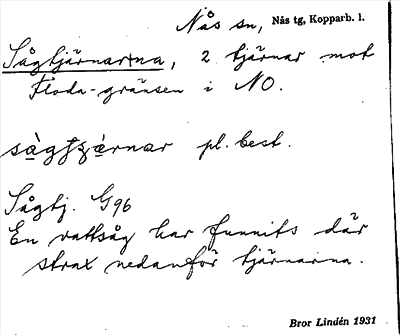 Nås sn, Nås tg, Kopparb. l.
Sågtjärnarna, 2 tjärnar mot
Floda-gränsen i NO.
pl. best.
Sågtj. G96
En vattsåg har funnits där
strax nedanför tjärnarna.
Bror Lindén 1931